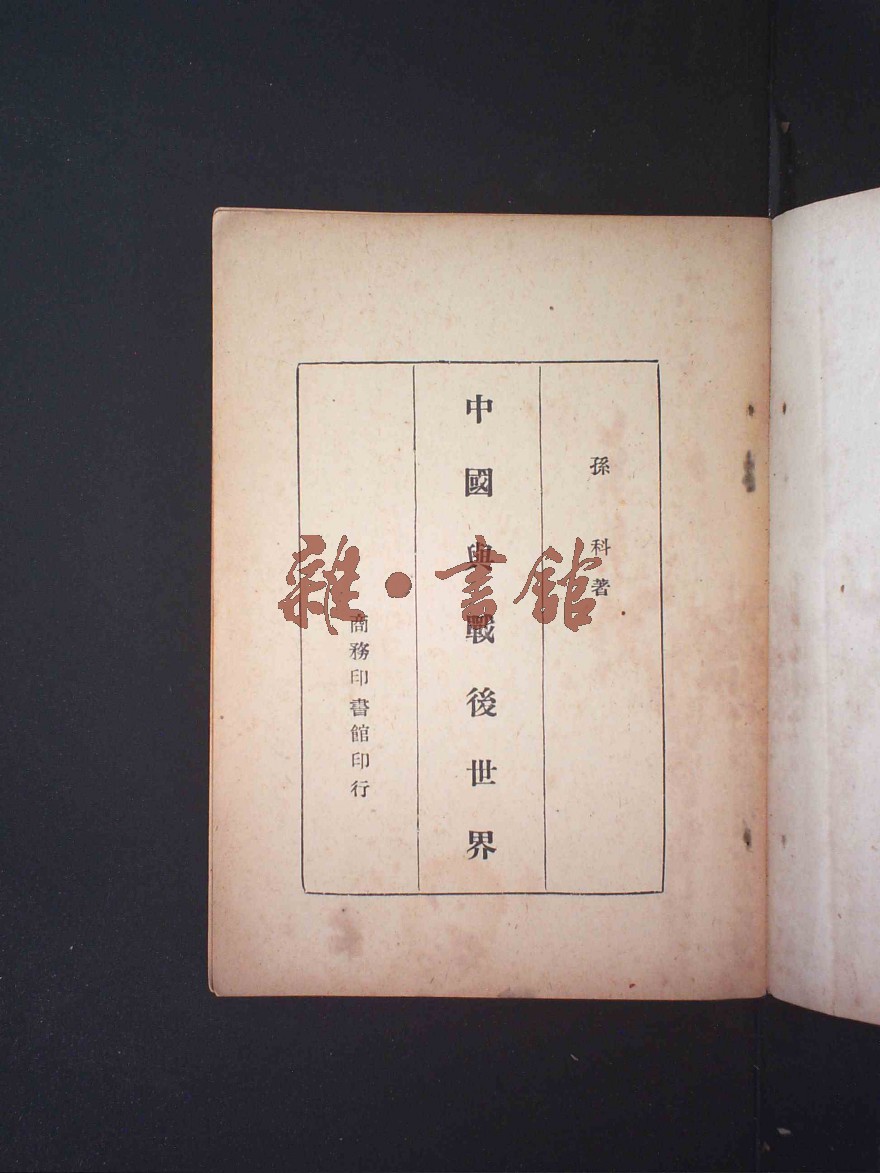 孫科著
中國與戰後世界
商務印書館印行
雜·書館